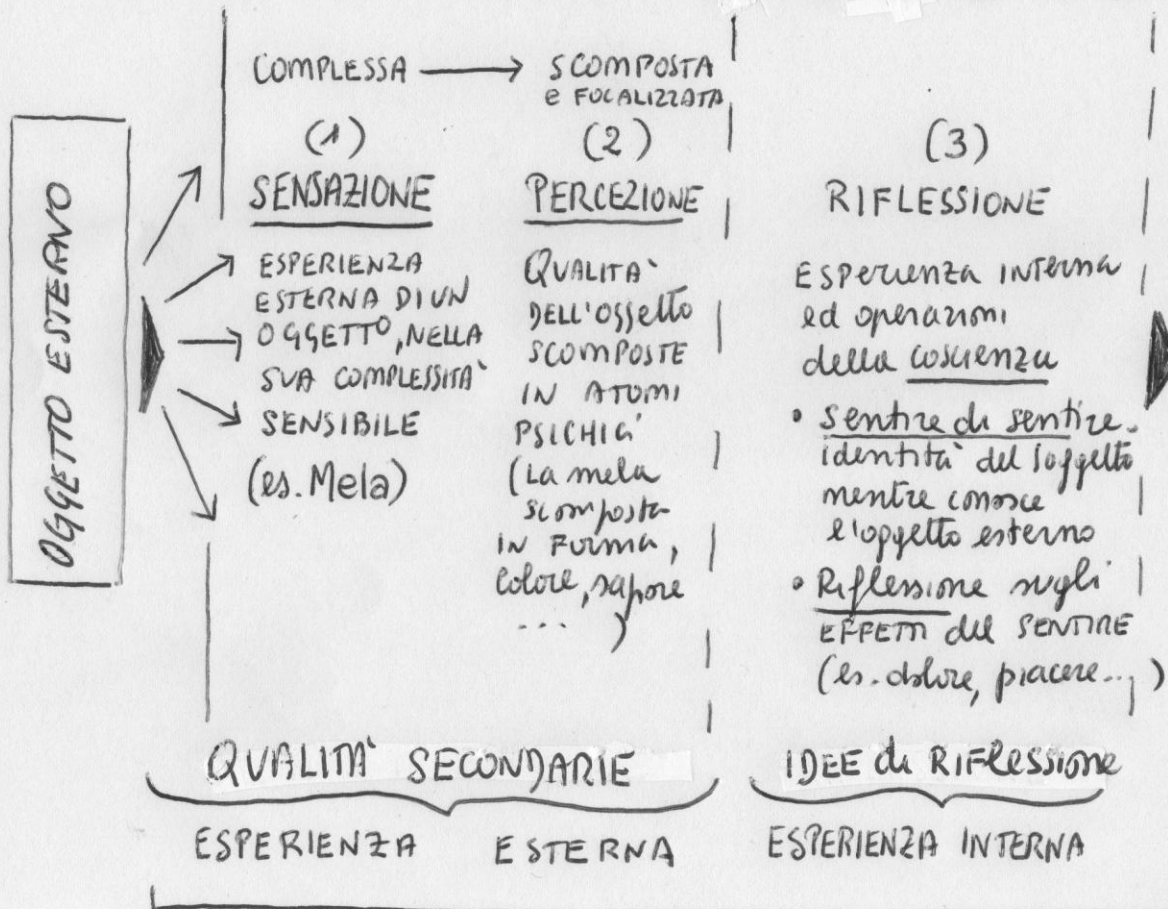 OGGETTO ESTERNO
COMPLESSA → SCOMPOSTA
e FOCALIZZATA
(1)
SENSAZIONE
ESPERIENZA
ESTERNA DI UN
OGGETTO, NELLA
SUA COMPLESSITA'
SENSIBILE
(es. Mela)
(2)
PERCEZIONE
QUALITA'
DELL'OGGETTO
SCOMPOSTE
IN ATOMI
PSICHICI
(La mela
scomposta
IN FORMA,
colore, sapore
... )
(3)
RIFLESSIONE
Esperienza interna
ed operazioni
della coscienza
• sentire di sentire.
identità del soggetto
mentre conosce
l'oggetto esterno
• Riflessione sugli
EFFETTI del SENTIRE
(es. dolore, piacere...)
QUALITA' SECONDARIE
IDEE di RIFLESSIONE
ESPERIENZA ESTERNA
ESPERIENZA INTERNA